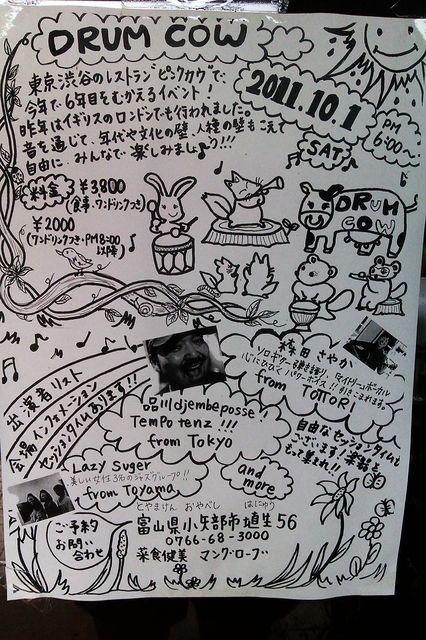 DRUM COW
東京渋谷のレストラン"ピンクカウ"で、
今年で6年目をむかえるイベント!
昨年はイギリスのロンドンでも行われました。
音を通じて、年代や文化の壁、人種の壁もこえて
自由に、みんなで楽しみましょう!!!
2011.10.1
SAT
PM
6:00~
料金
¥3800
(食事・ワンドリンクつき)
¥2000
(ワンドリンクつき・PM8:00
以降)
DRUM
COW
出演者リスト
会場インフォメーション
セッションタイムあります!!
品川djembeposse
Tempo tenz !!!
from Tokyo
森田 さやか
ソロギター弾き語り。
心にひびくパワーボイス!!
from TOTTORI
Lazy Suger
美しい女性3名のジャズグループ!!
from Toyama
and
more
自由なセッションタイムも
ございます!楽器を
もって集まれ!!
ご予約
お問い
合わせ
とやまけん おやべし はにゅう
富山県小矢部市埴生56
0766-68-3000
菜食健美 マングローブ